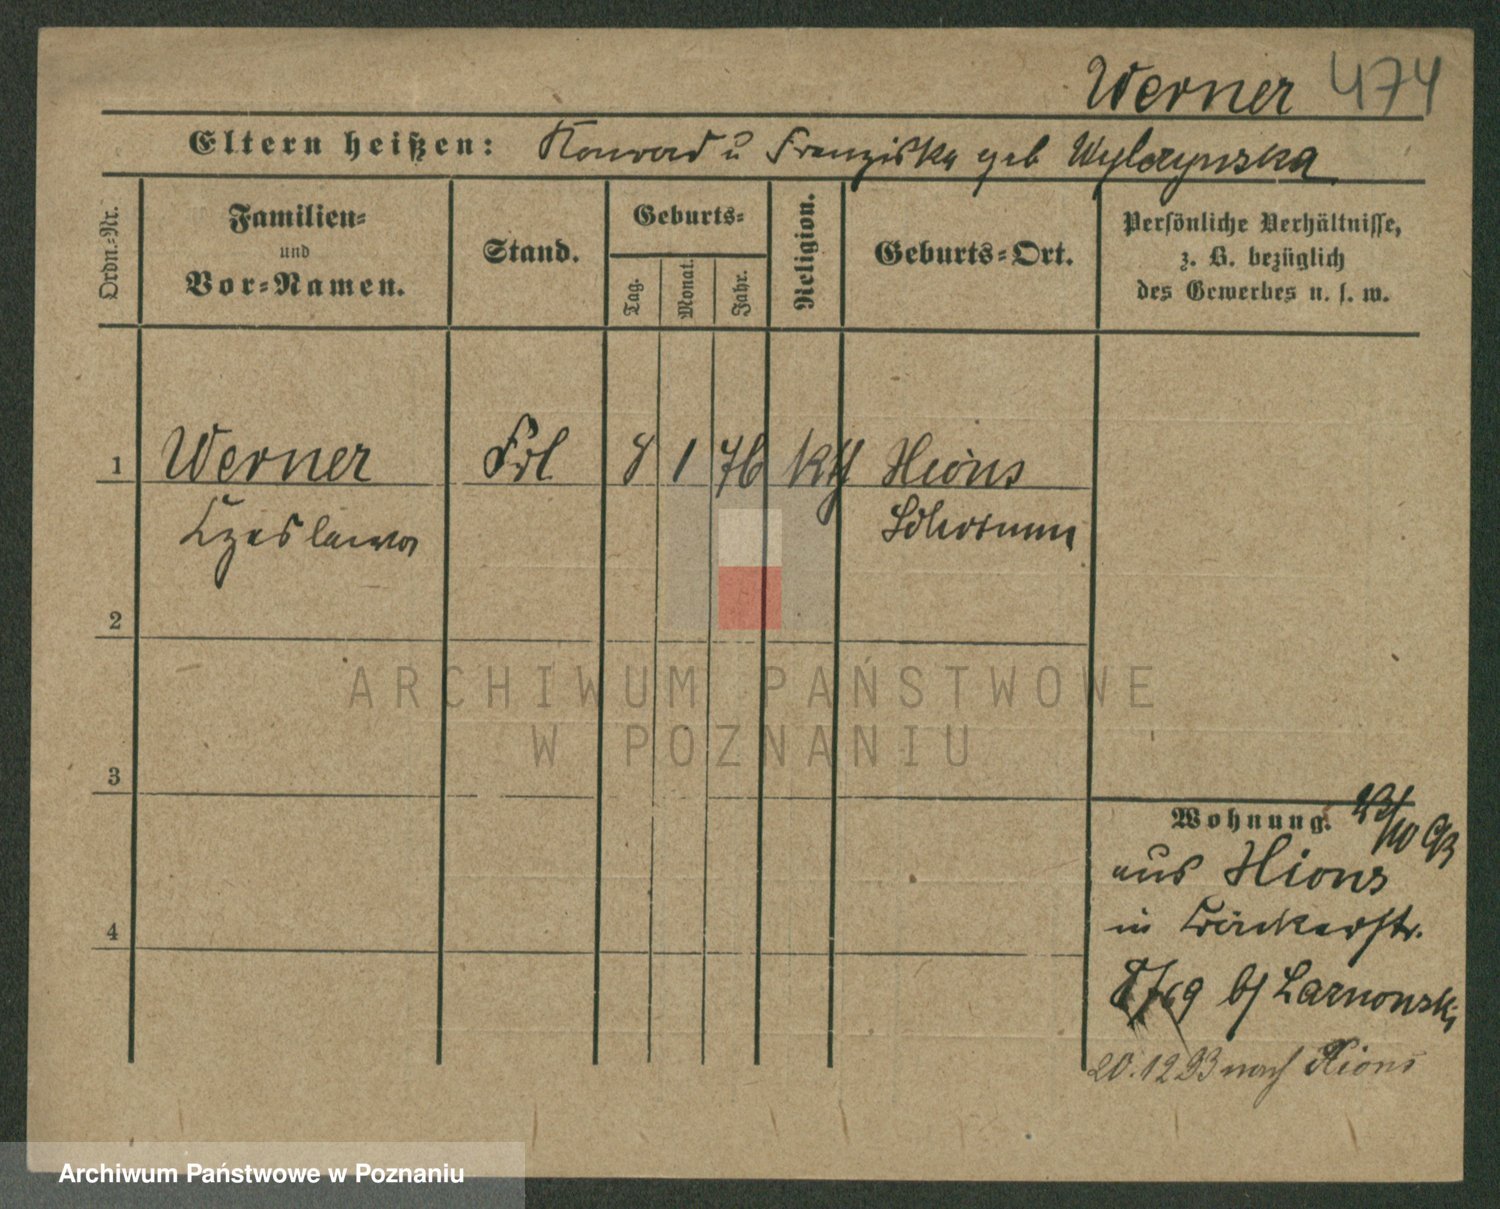 Werner 474
Eltern heißen: Konrad u Franziska geb Wylczynska
Ordn.=Nr.
Familien=
und
Vor=Namen.
Stand.
Geburts=
Tag.
Monat.
Jahr.
Religion.
Geburts=Ort.
Persönliche Verhältnisse,
z. B. bezüglich
des Gewerbes u. s. w.
1 Werner Frl 8 1 76 kth Xions
Czeslawa Schrimm
2
3
4
Wohnung.
aus Xions
in Bäckerstr.
b/
20.12 93 nach Xions
ARCHIWUM PAŃSTWOWE
W POZNANIU
Archiwum Państwowe w Poznaniu